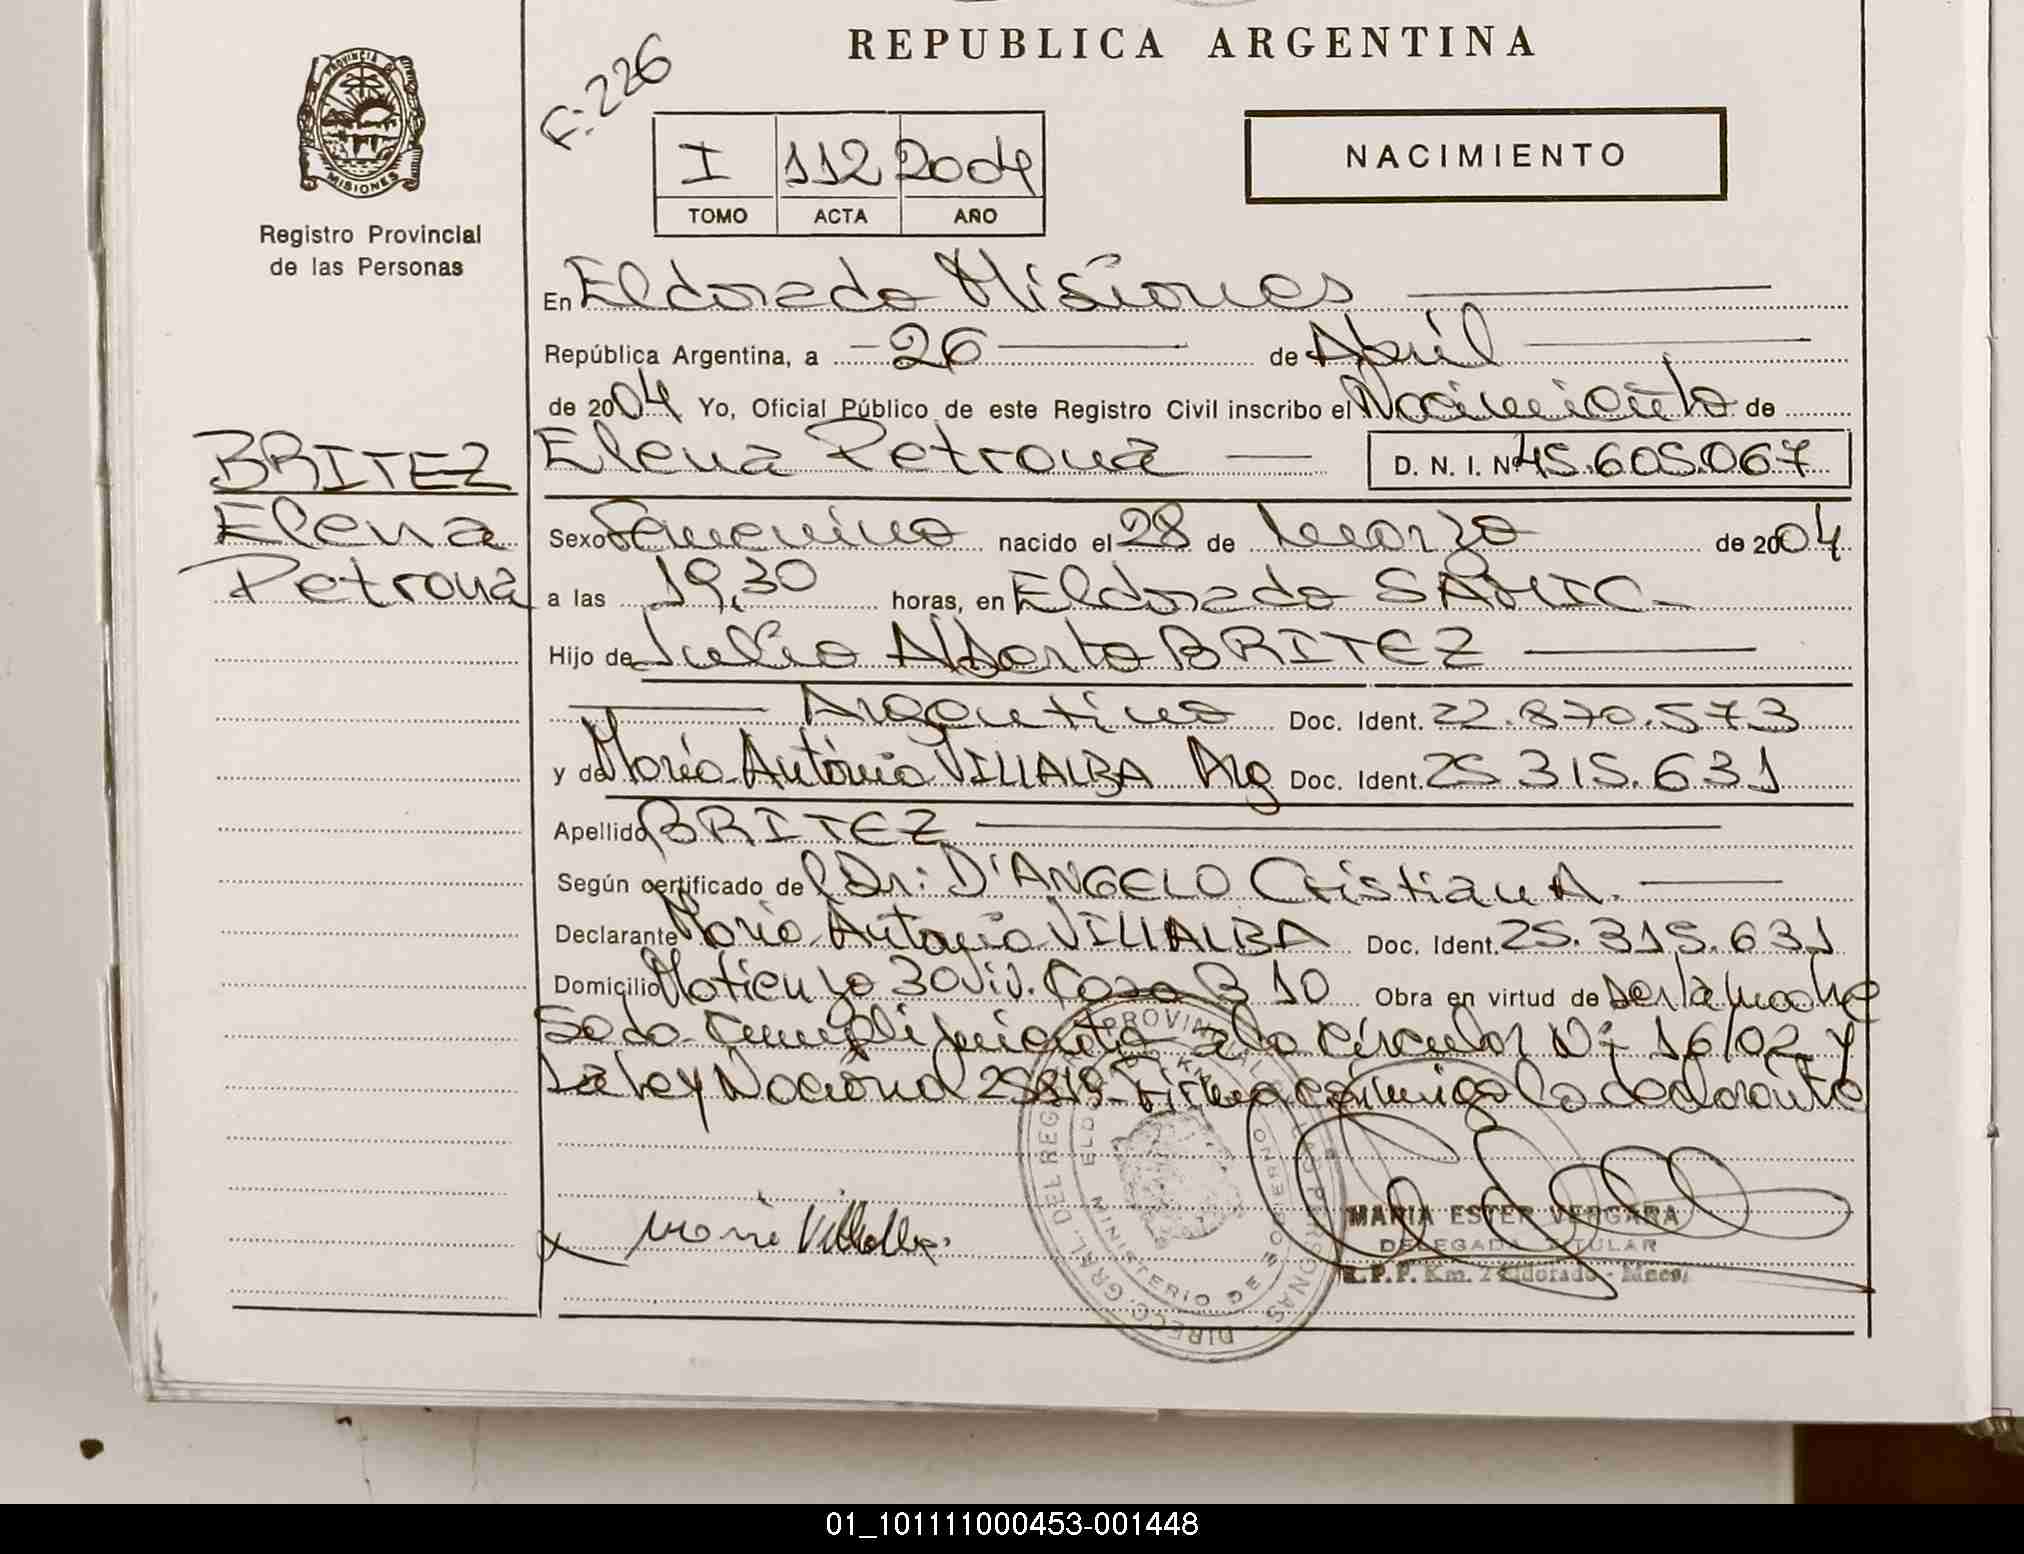 REPUBLICA ARGENTINA
F:226
PROVINCIA DE
MISIONES
Registro Provincial
de las Personas
I 112 2004
TOMO ACTA AÑO
NACIMIENTO
En Eldorado Misiones
República Argentina, a 26 de Abril
de 2004 Yo, Oficial Público de este Registro Civil inscribo el Nacimiento de
BRITEZ
Elena
Petrona
Elena Petrona D. N. I. Nº 45.605.067
Sexo Femenino nacido el 28 de marzo de 2004
a las 19,30 horas, en Eldorado SAMIC
Hijo de Julio Alberto BRITEZ
Argentino Doc. Ident. 22.870.573
y de María Antonia VILLALBA Arg Doc. Ident. 25.315.631
Apellido BRITEZ
Según certificado de Dr: D'ANGELO Cristian A.
Declarante María Antonia VILLALBA Doc. Ident. 25.315.631
Domicilio Matienzo 30 Viv. Casa B 10 Obra en virtud de ser la madre
Se da cumplimiento a la Circular Nº 16/02 y
la Ley Nacional Firma conmigo la declarante
María Villalba
MARIA ESTER VERGARA
DELEGADA TITULAR
R.P.P. Km. 2 Eldorado - Mnes.
DIRECC. GRAL. DEL REG. PROVINCIAL DE LAS PERSONAS
MINISTERIO DE GOBIERNO
01_101111000453-001448